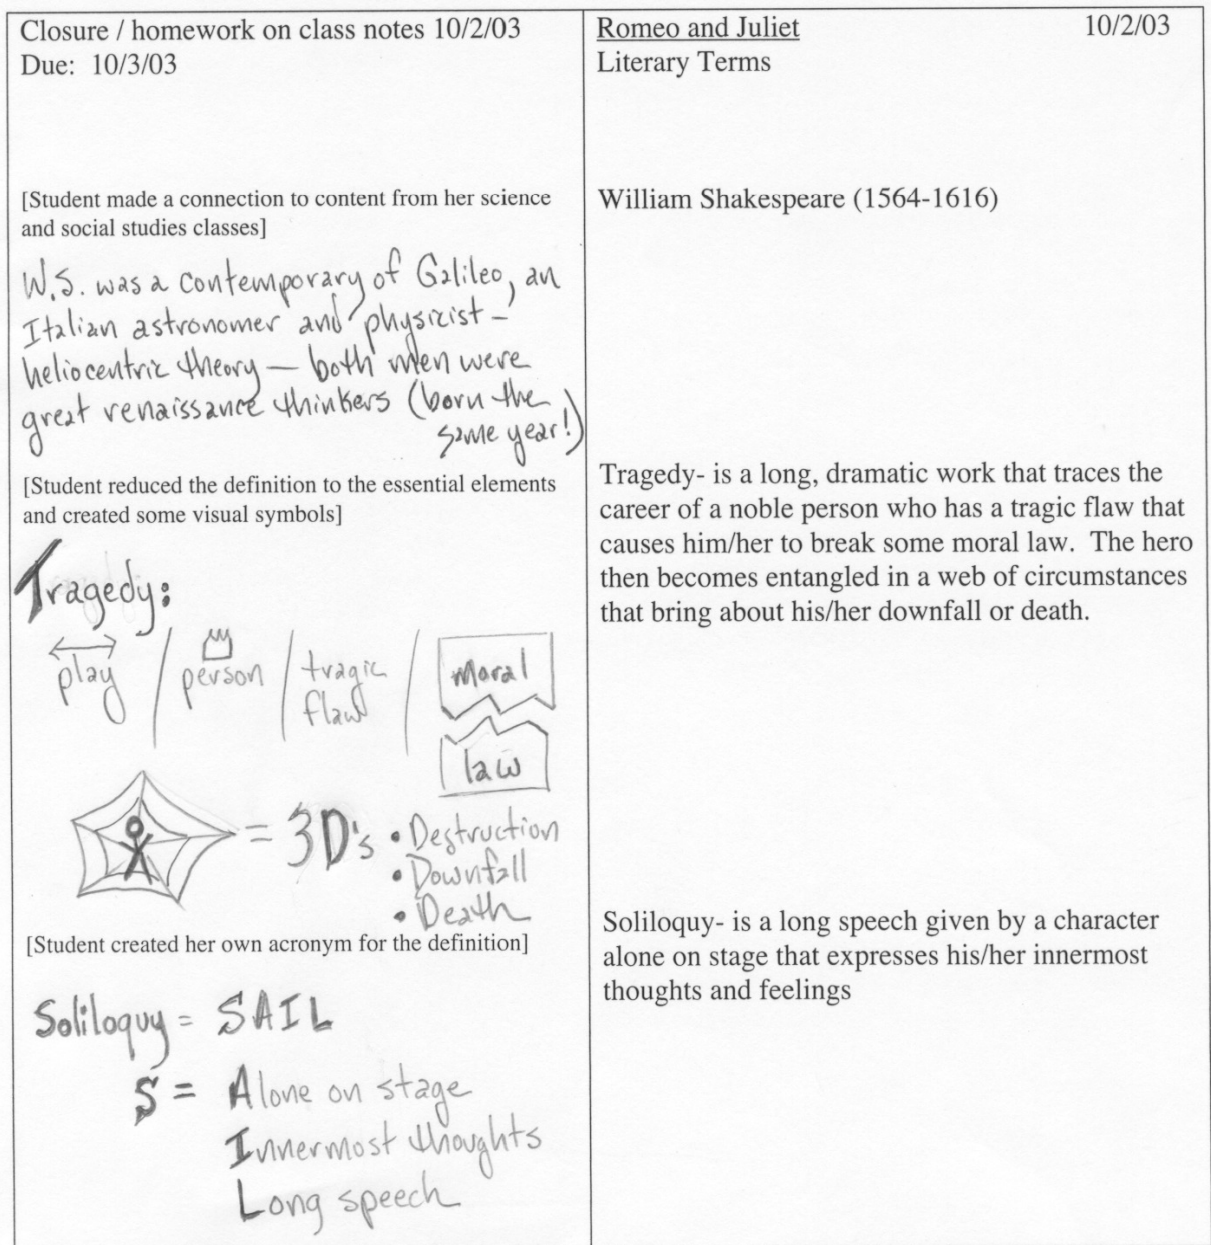 Closure / homework on class notes 10/2/03
Due: 10/3/03
[Student made a connection to content from her science
and social studies classes]
W.S. was a contemporary of Galileo, an
Italian astronomer and physicist –
heliocentric theory — both men were
great renaissance thinkers (born the
same year!)
[Student reduced the definition to the essential elements
and created some visual symbols]
Tragedy:
play / person / tragic flaw / moral law
= 3D's • Destruction
• Downfall
• Death
[Student created her own acronym for the definition]
Soliloquy = SAIL
S = Alone on stage
Innermost thoughts
Long speech
Romeo and Juliet 10/2/03
Literary Terms
William Shakespeare (1564-1616)
Tragedy- is a long, dramatic work that traces the
career of a noble person who has a tragic flaw that
causes him/her to break some moral law. The hero
then becomes entangled in a web of circumstances
that bring about his/her downfall or death.
Soliloquy- is a long speech given by a character
alone on stage that expresses his/her innermost
thoughts and feelings